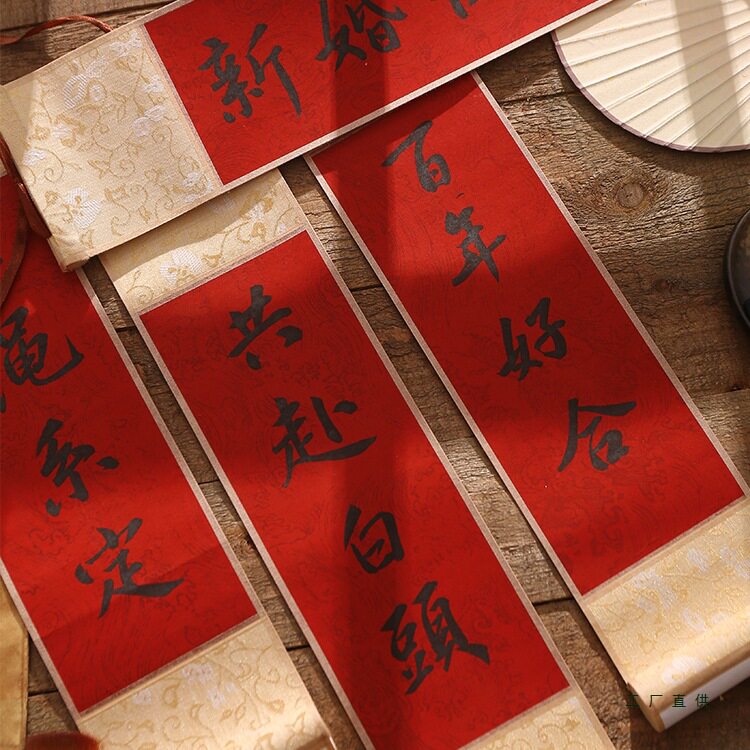 新婚
百年好合
共赴白頭
繩系定
工厂直供